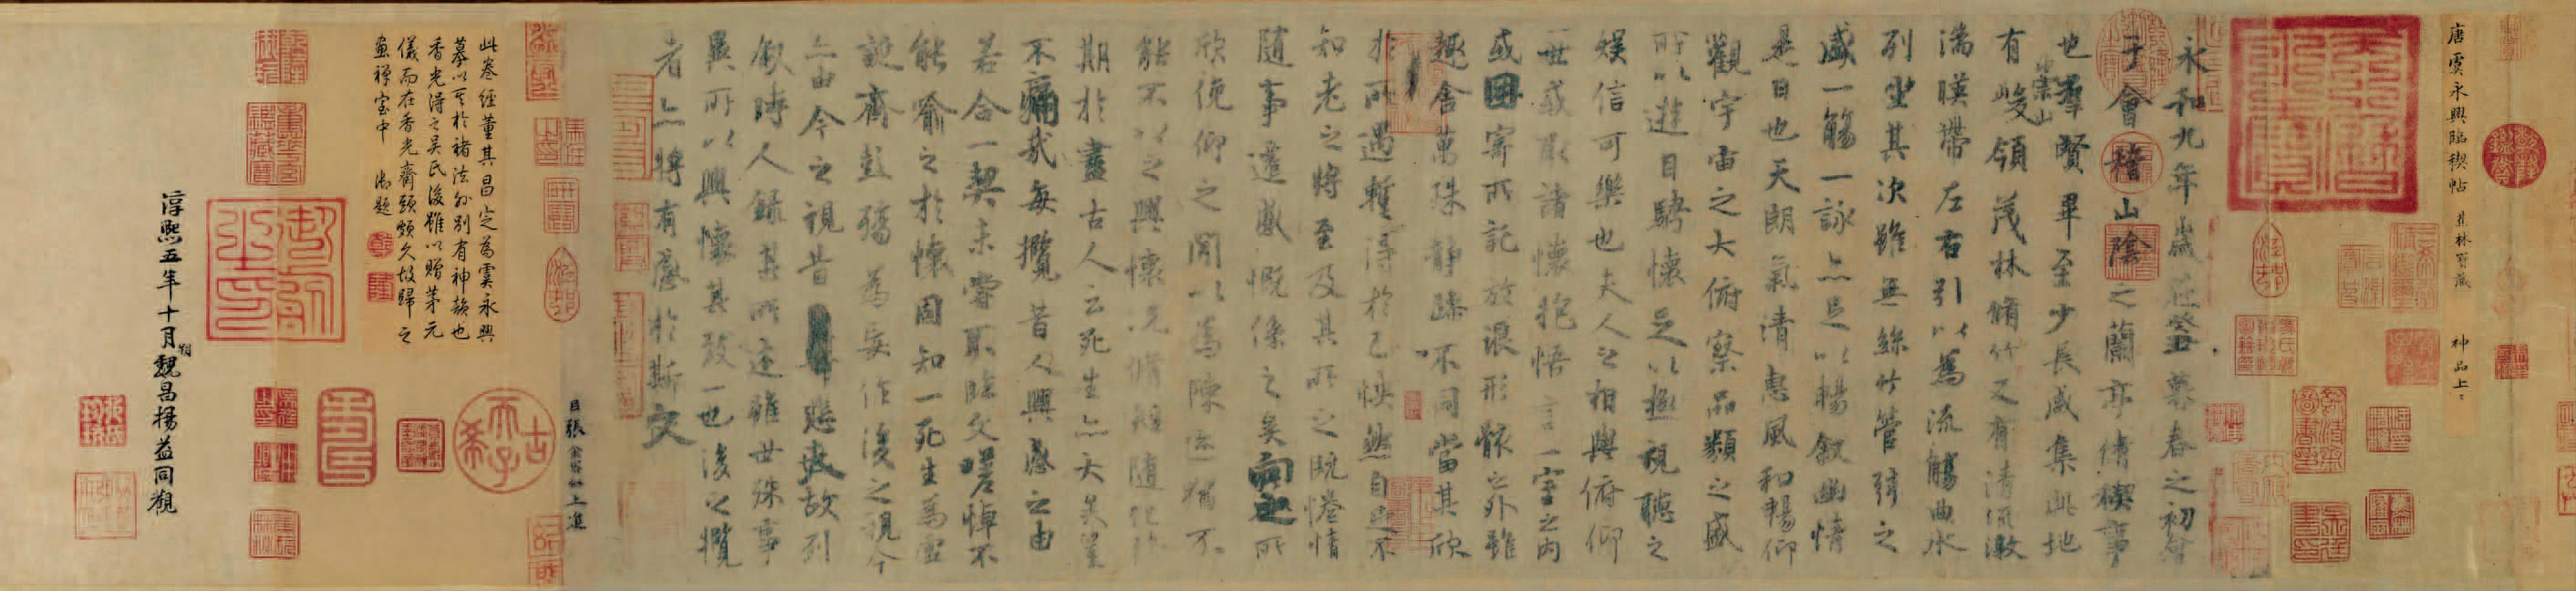 唐虞永興臨禊帖 蕉林寶藏 神品上上
永和九年歲在癸丑暮春之初會
于會稽山陰之蘭亭脩禊事
也羣賢畢至少長咸集此地
有崇山峻領茂林脩竹又有清流激
湍暎帶左右引以爲流觴曲水
列坐其次雖無絲竹管弦之
盛一觴一詠亦足以暢敘幽情
是日也天朗氣清惠風和暢仰
觀宇宙之大俯察品類之盛
所以遊目騁懷足以極視聽之
娛信可樂也夫人之相與俯仰
一世或取諸懷抱悟言一室之內
或因寄所託放浪形骸之外雖
趣舍萬殊靜躁不同當其欣
於所遇暫得於己怏然自足不
知老之將至及其所之既惓情
隨事遷感慨係之矣向之所
欣俛仰之閒以爲陳迹猶不
能不以之興懷況脩短隨化終
期於盡古人云死生亦大矣豈
不痛哉每攬昔人興感之由
若合一契未嘗不臨文嗟悼不
能喻之於懷固知一死生爲虛
誕齊彭殤爲妄作後之視今
亦由今之視昔悲夫故列
敘時人錄其所述雖世殊事
異所以興懷其致一也後之攬
者亦將有感於斯文
臣張金界奴上進
此卷經董其昌定爲虞永興
摹以其於褚法外別有神韻也
香光得之吳氏後雖以贈茅元
儀而在香光齋頭頗久故歸之
畫禪室中 御題
乾
隆
淳熙五年十月朔魏昌楊益同觀